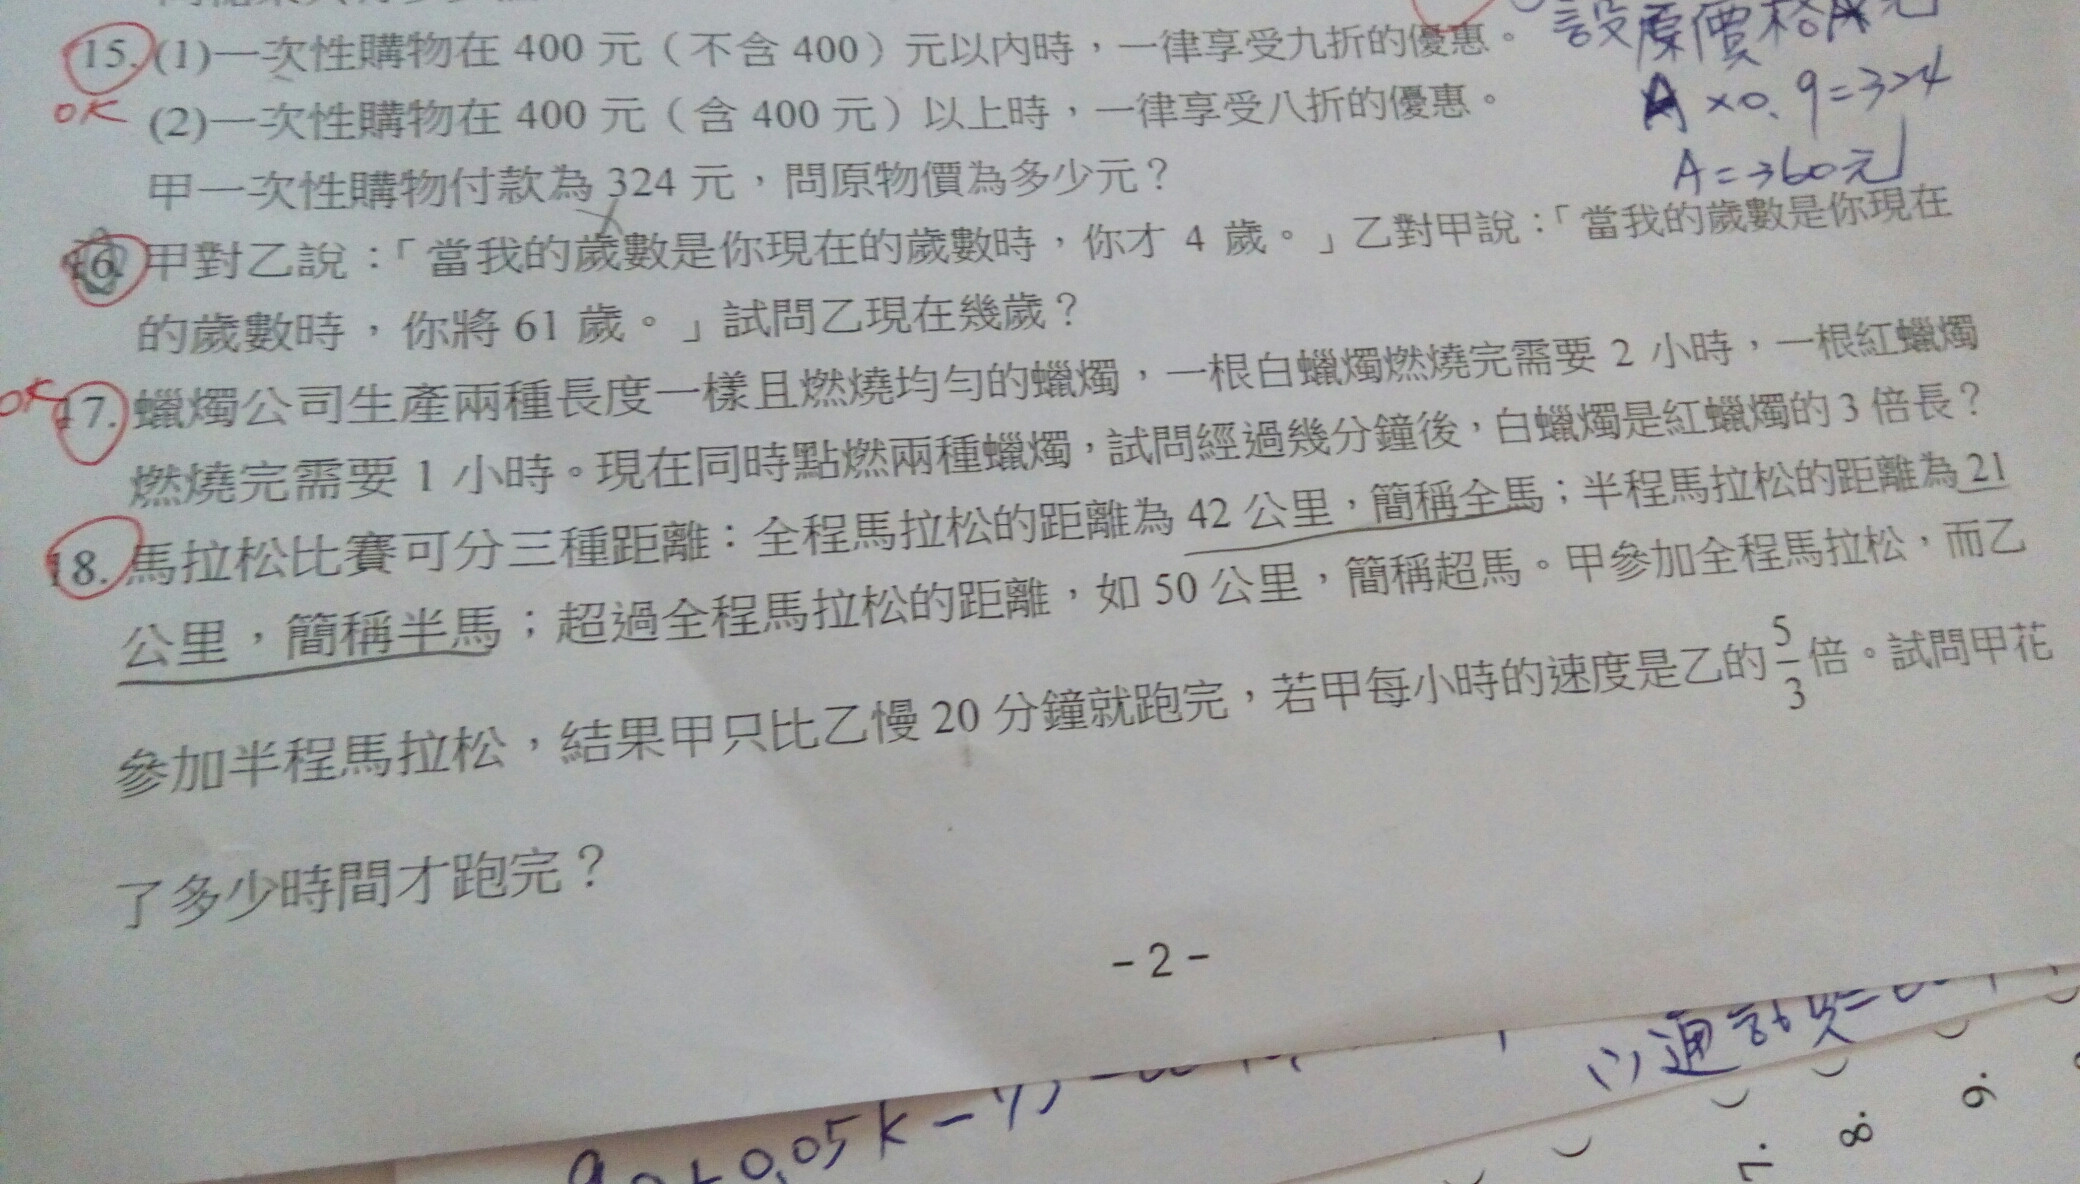 15. (1)一次性購物在 400 元（不含 400）元以內時，一律享受九折的優惠。
設原價格A元
OK
(2)一次性購物在 400 元（含 400 元）以上時，一律享受八折的優惠。
A×0.9=324
甲一次性購物付款為 324 元，問原物價為多少元？
A=360元
16. 甲對乙說：「當我的歲數是你現在的歲數時，你才 4 歲。」乙對甲說：「當我的歲數是你現在
的歲數時，你將 61 歲。」試問乙現在幾歲？
OK
17. 蠟燭公司生產兩種長度一樣且燃燒均勻的蠟燭，一根白蠟燭燃燒完需要 2 小時，一根紅蠟燭
燃燒完需要 1 小時。現在同時點燃兩種蠟燭，試問經過幾分鐘後，白蠟燭是紅蠟燭的 3 倍長？
18. 馬拉松比賽可分三種距離：全程馬拉松的距離為 42 公里，簡稱全馬；半程馬拉松的距離為 21
公里，簡稱半馬；超過全程馬拉松的距離，如 50 公里，簡稱超馬。甲參加全程馬拉松，而乙
參加半程馬拉松，結果甲只比乙慢 20 分鐘就跑完，若甲每小時的速度是乙的 5/3 倍。試問甲花
了多少時間才跑完？
-2-
(1)通話費=
0.05k-
7. (
8. (
9. (